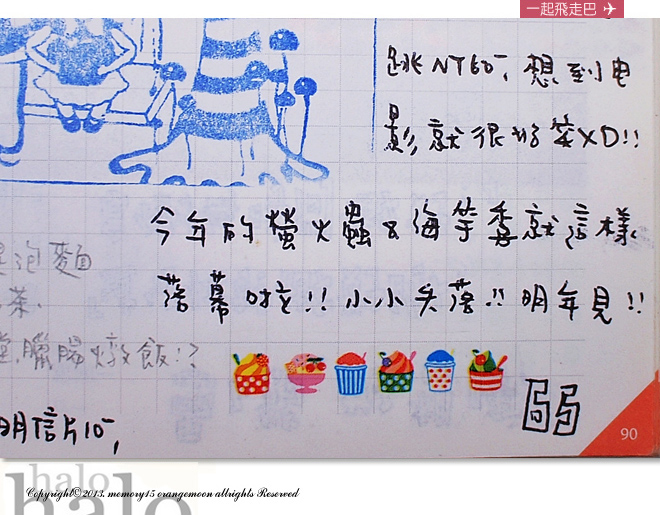 一起飛走巴
跳NT60-, 想到电
影, 就很好笑XD!!
今年的螢火蟲&海芋季就這樣
落幕啦!! 小小失落!! 明年見!!
泡麵
茶.
臘腸燉飯!?
明信片10-,
弱
90
halo
halo
Copyright© 2013. memory15 orangemoon allrights Reserved